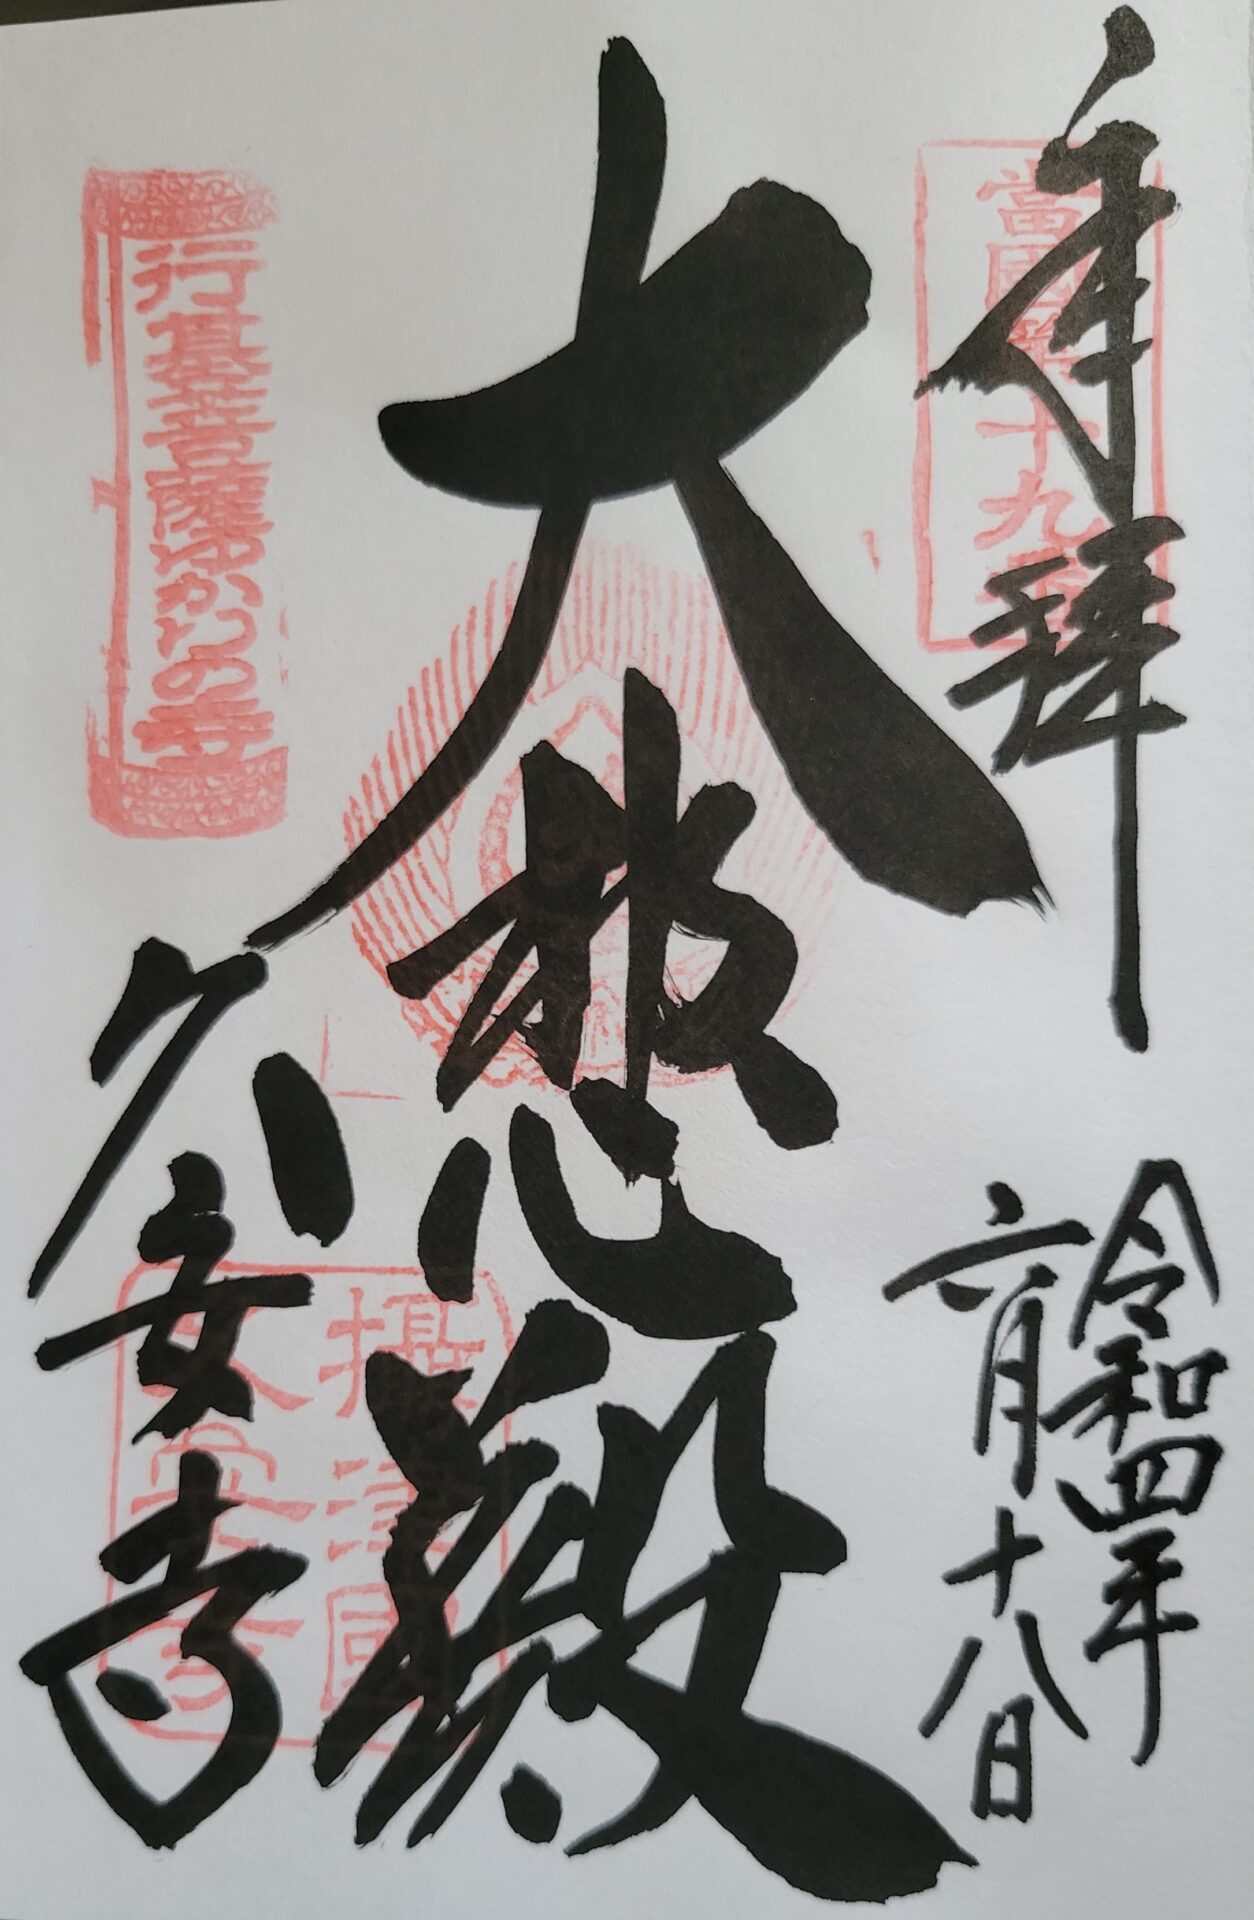 奉拜
當國第十九番
令和四年
六月十八日
大悲殿
行基菩薩ゆかりの寺
久安寺
攝津國
久安寺